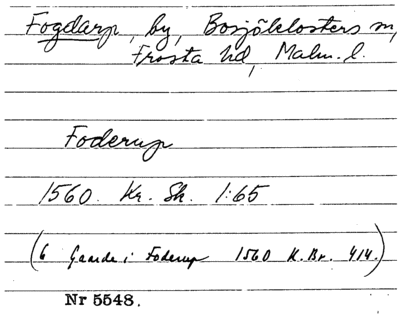 Fogdarp, by, Bosjöklosters sn,
Frosta hd, Malm. l.
Foderup
1560. Kr. Sk. 1:65
(6 Gaarde i Foderup 1560 K. Br. 414.)
Nr 5548.